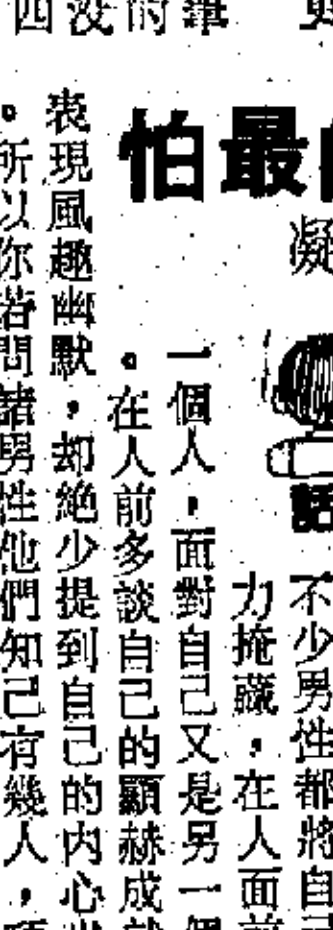 筆
的
没
四
最怕
凝
話
不少男性都將自
力掩藏，在人面前
一個人，面對自己又是另一個
。在人前多談自己的顯赫成
表現風趣幽默，却絶少提到自己的内心
。所以你若問諸男性他們知己有幾人，